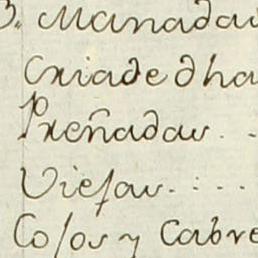 3. Manadas
Criade dha
Preñadas. .
Viejas. . . .
Cojos y Cabre